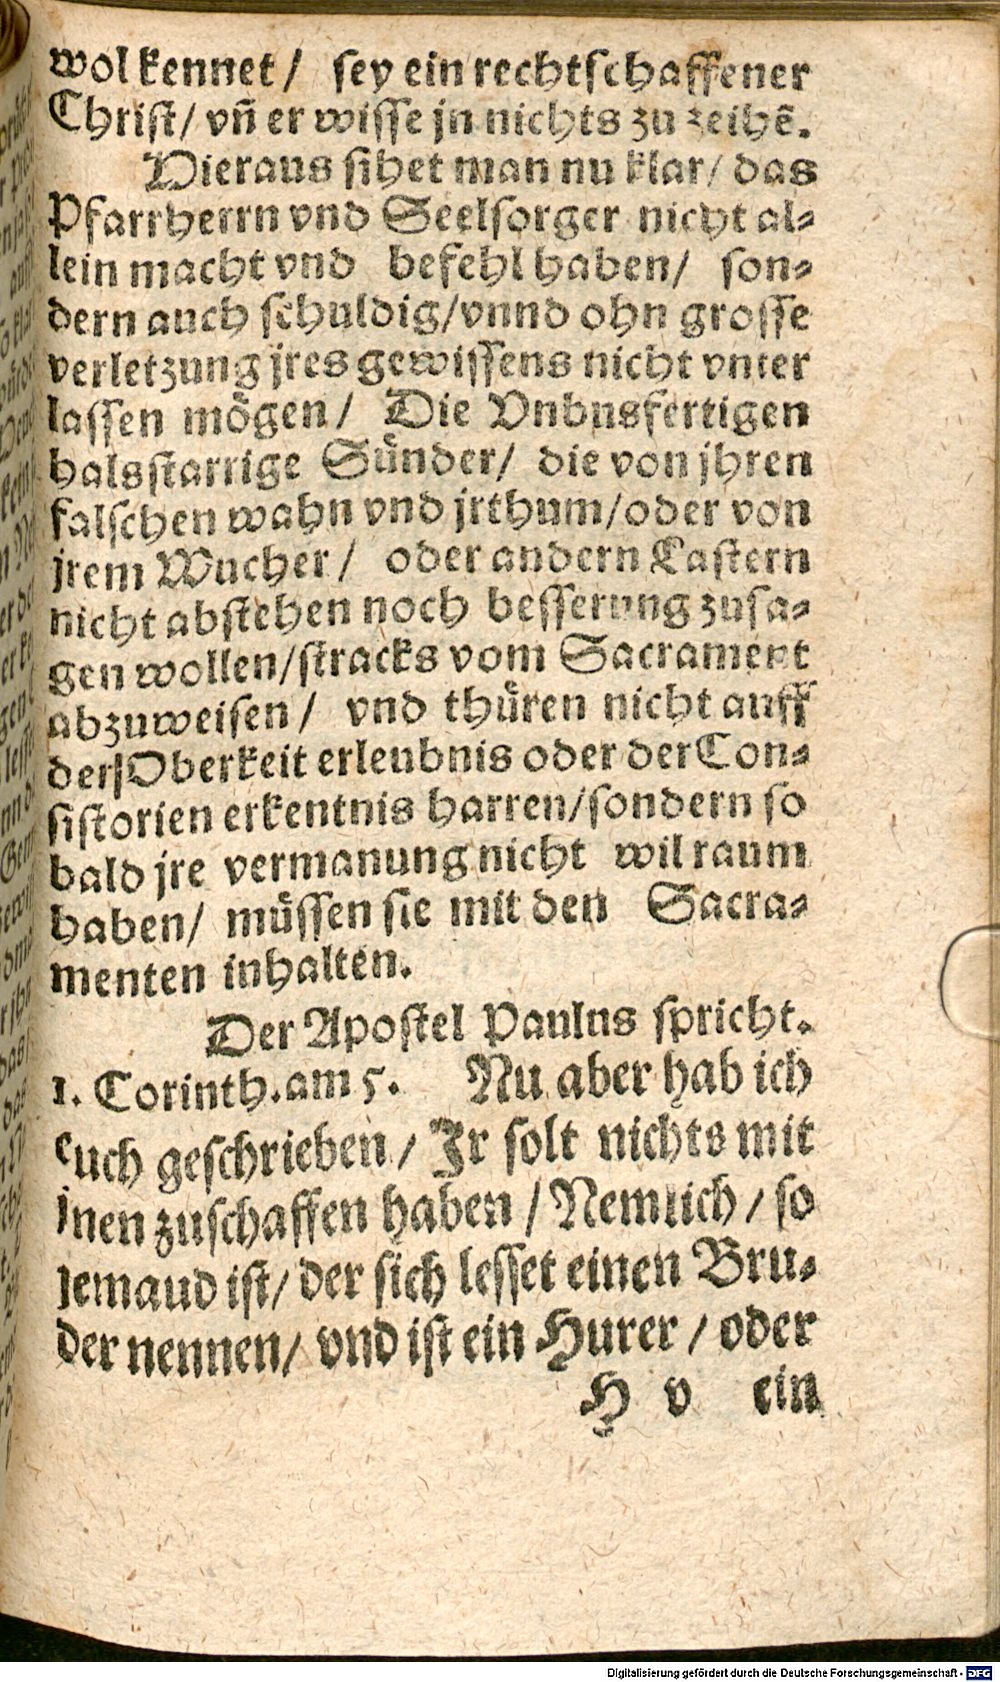 wol kennet / sey ein rechtschaffener
Christ / vñ er wisse jn nichts zu zeihẽ.
Hieraus sihet man nu klar / das
Pfarrherrn vnd Seelsorger nicht al-
lein macht vnd befehl haben / son-
dern auch schuldig / vnnd ohn grosse
verletzung jres gewissens nicht vnter
lassen mögen / Die Vnbusfertigen
halsstarrige Sünder / die von jhren
falschen wahn vnd jrthum / oder von
jrem Wucher / oder andern Lastern
nicht abstehen noch besserung zusa-
gen wollen / stracks vom Sacrament
abzuweisen / vnd thüren nicht auff
der Oberkeit erleubnis oder der Con-
sistorien erkentnis harren / sondern so
bald jre vermanung nicht wil raum
haben / müssen sie mit den Sacra-
menten inhalten.
Der Apostel Paulus spricht.
1. Corinth. am 5. Nu aber hab ich
euch geschrieben / Jr solt nichts mit
jnen zuschaffen haben / Nemlich / so
jemaud ist / der sich lesset einen Bru-
der nennen / vnd ist ein Hurer / oder
H v ein
Digitalisierung gefördert durch die Deutsche Forschungsgemeinschaft - DFG